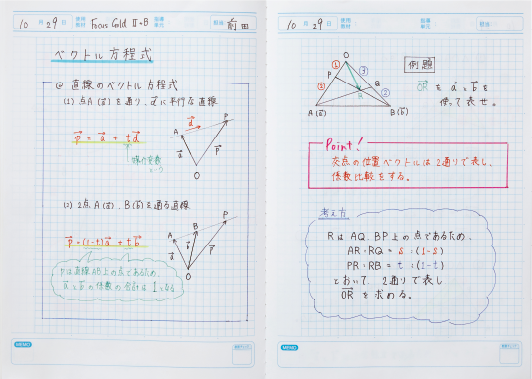 10月29日 使用教材 Focus Gold Ⅱ+B 指導単元 担当 前田
ベクトル方程式
◎ 直線のベクトル方程式
(1) 点A(a⃗)を通り、d⃗に平行な直線
p⃗ = a⃗ + td⃗
媒介変数
A d⃗ P
a⃗ p⃗
O
(2) 2点A(a⃗)、B(b⃗)を通る直線
p⃗ = (1-t)a⃗ + tb⃗
A B P
a⃗ b⃗ p⃗
O
Pは直線AB上の点であるため、
a⃗とb⃗の係数の合計は1になる
MEMO
10月29日 使用教材 指導単元 担当
例題
OR⃗ を a⃗ と b⃗ を
使って表せ。
O
① ③
P Q
③ R ②
A(a⃗) B(b⃗)
Point!
交点の位置ベクトルは2通りで表し、
係数比較をする。
考え方
RはAQ、BP上の点であるため、
AR:RQ = s:(1-s)
PR:RB = t:(1-t)
とおいて、2通りで表し
OR⃗ を求める。
MEMO